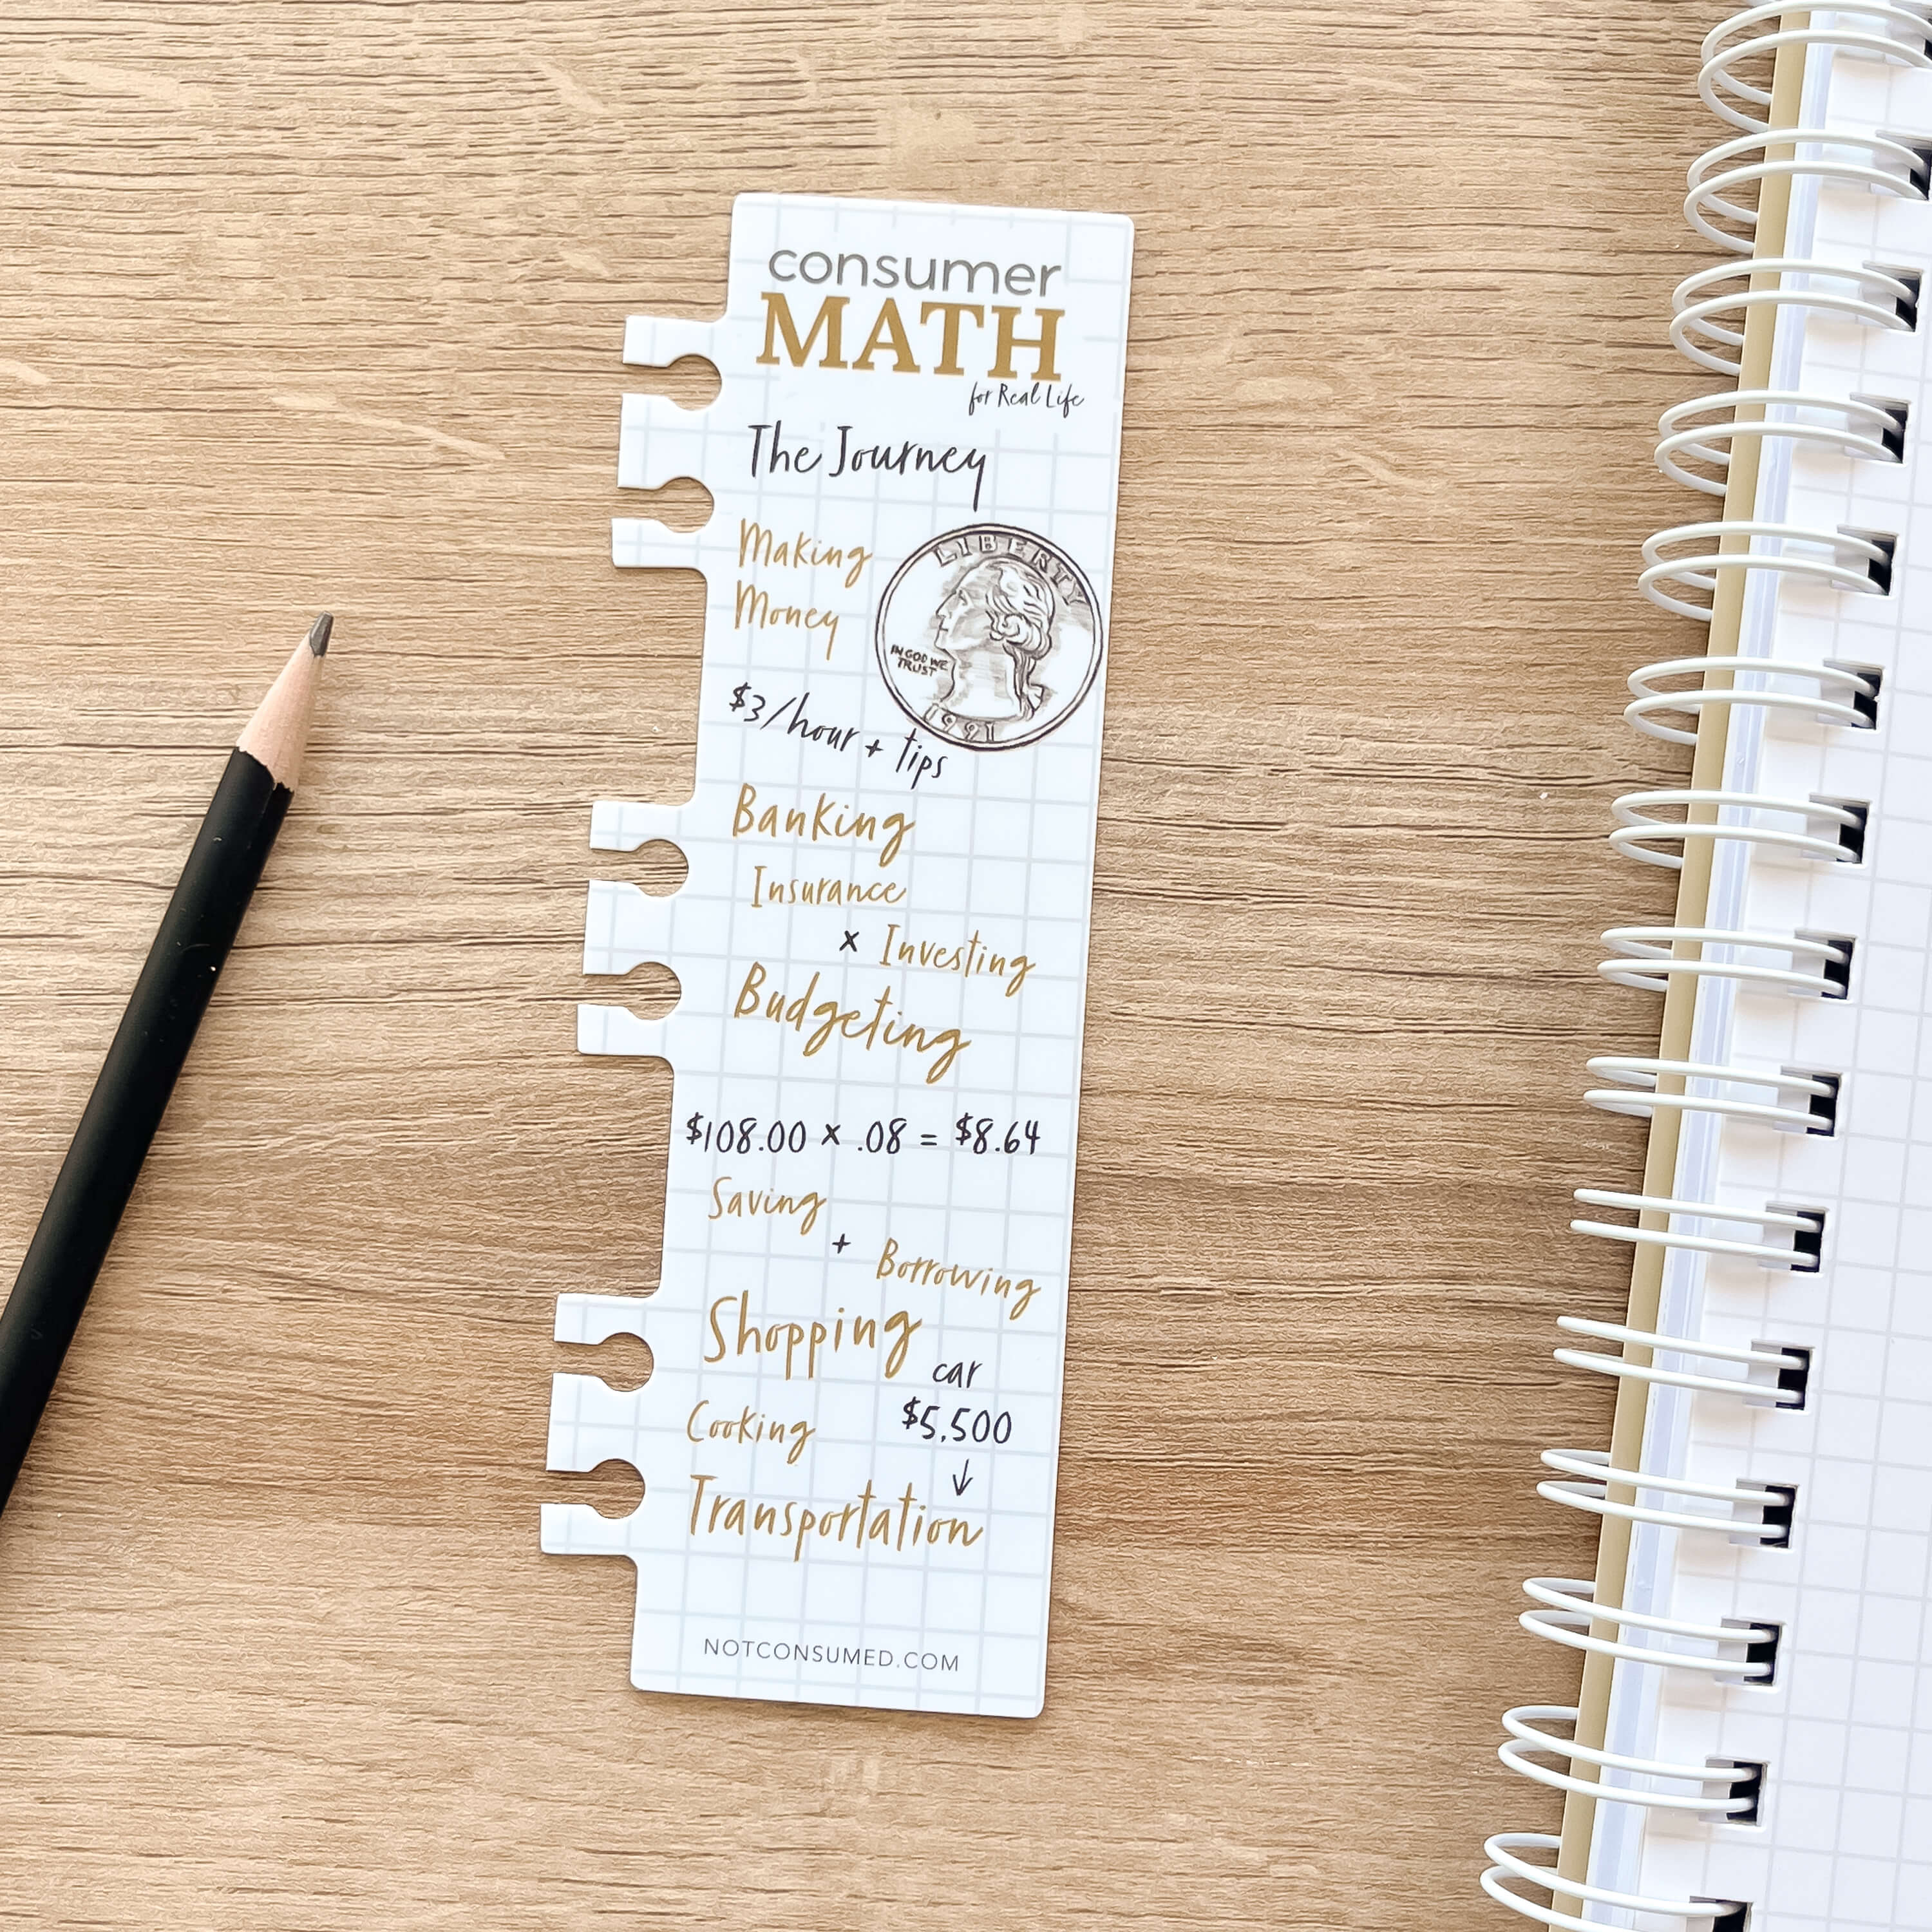 consumer
MATH
for Real Life
The Journey
Making
Money
LIBERTY
IN GOD WE
TRUST
1991
$3/hour + tips
Banking
Insurance
x Investing
Budgeting
$108.00 x .08 = $8.64
Saving
+ Borrowing
Shopping
car
Cooking $5,500
↓
Transportation
NOTCONSUMED.COM